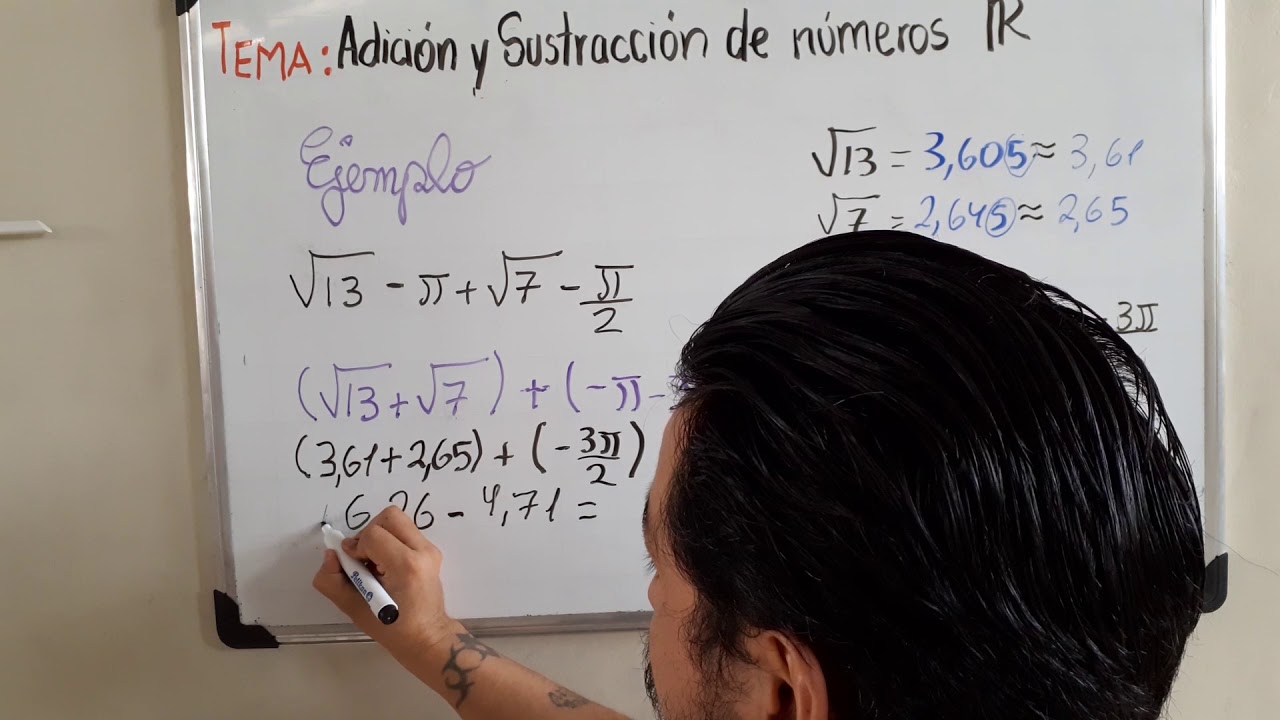 TEMA: Adición y Sustracción de números ℝ
Ejemplo
√13 = 3,605 ≈ 3,61
√7 = 2,645 ≈ 2,65
√13 - π + √7 - π/2
- 3π
(√13 + √7) + (-π -
(3,61 + 2,65) + (- 3π/2)
6,26 - 4,71 =